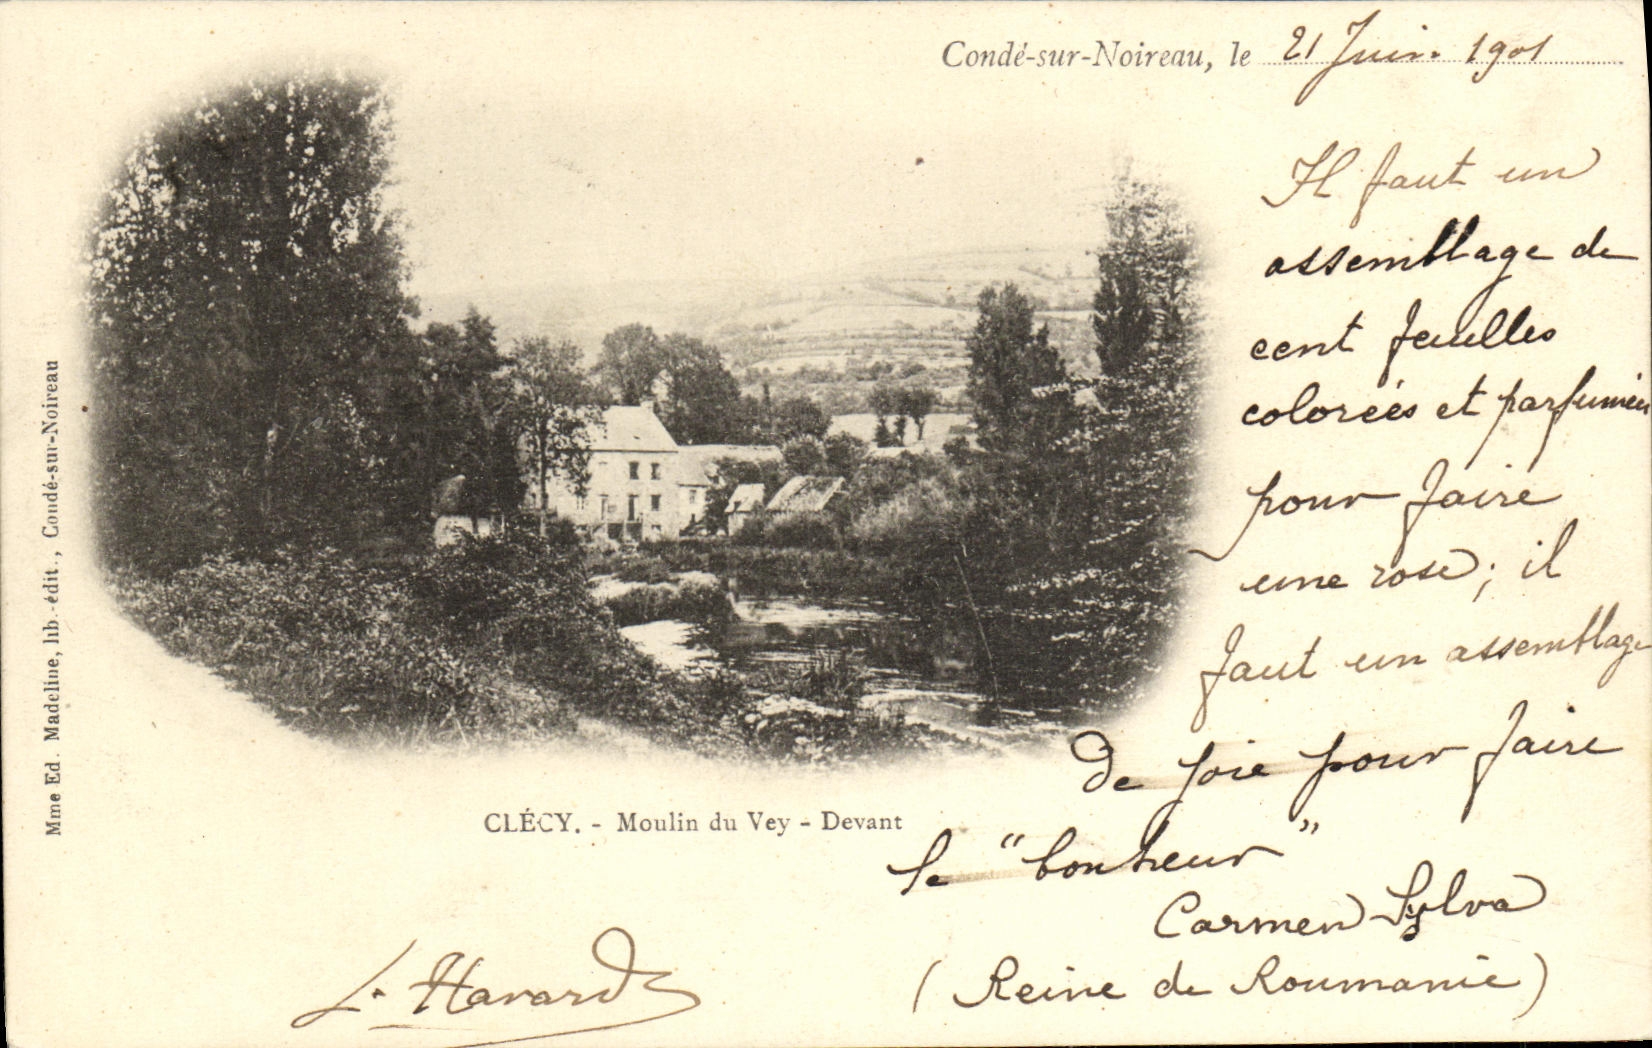 Condé-sur-Noireau, le 21 Juin 1901
Il faut un
assemblage de
cent feuilles
colorées et parfumées
pour faire
une rose; il
faut un assemblage
De joie pour faire
le "bonheur"
Carmen Sylva
(Reine de Roumanie)
CLÉCY. - Moulin du Vey - Devant
L. Havard
Mme Ed. Madeline, lib.-édit., Condé-sur-Noireau